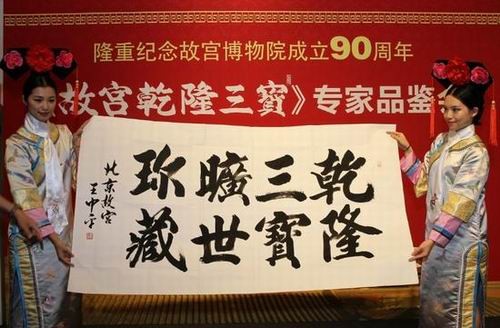 隆重纪念故宫博物院成立90周年
故宫乾隆三寶》专家品鉴
乾隆
三寶
曠世
珎藏
北京故宫